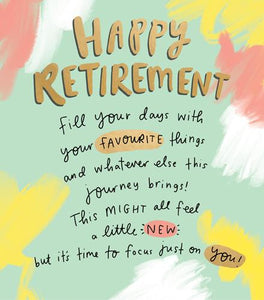 HAPPY
RETIREMENT
fill your days with
your FAVOURITE things
and whatever else this
journey brings!
This MIGHT all feel
a little NEW
but it's time to focus just on you!